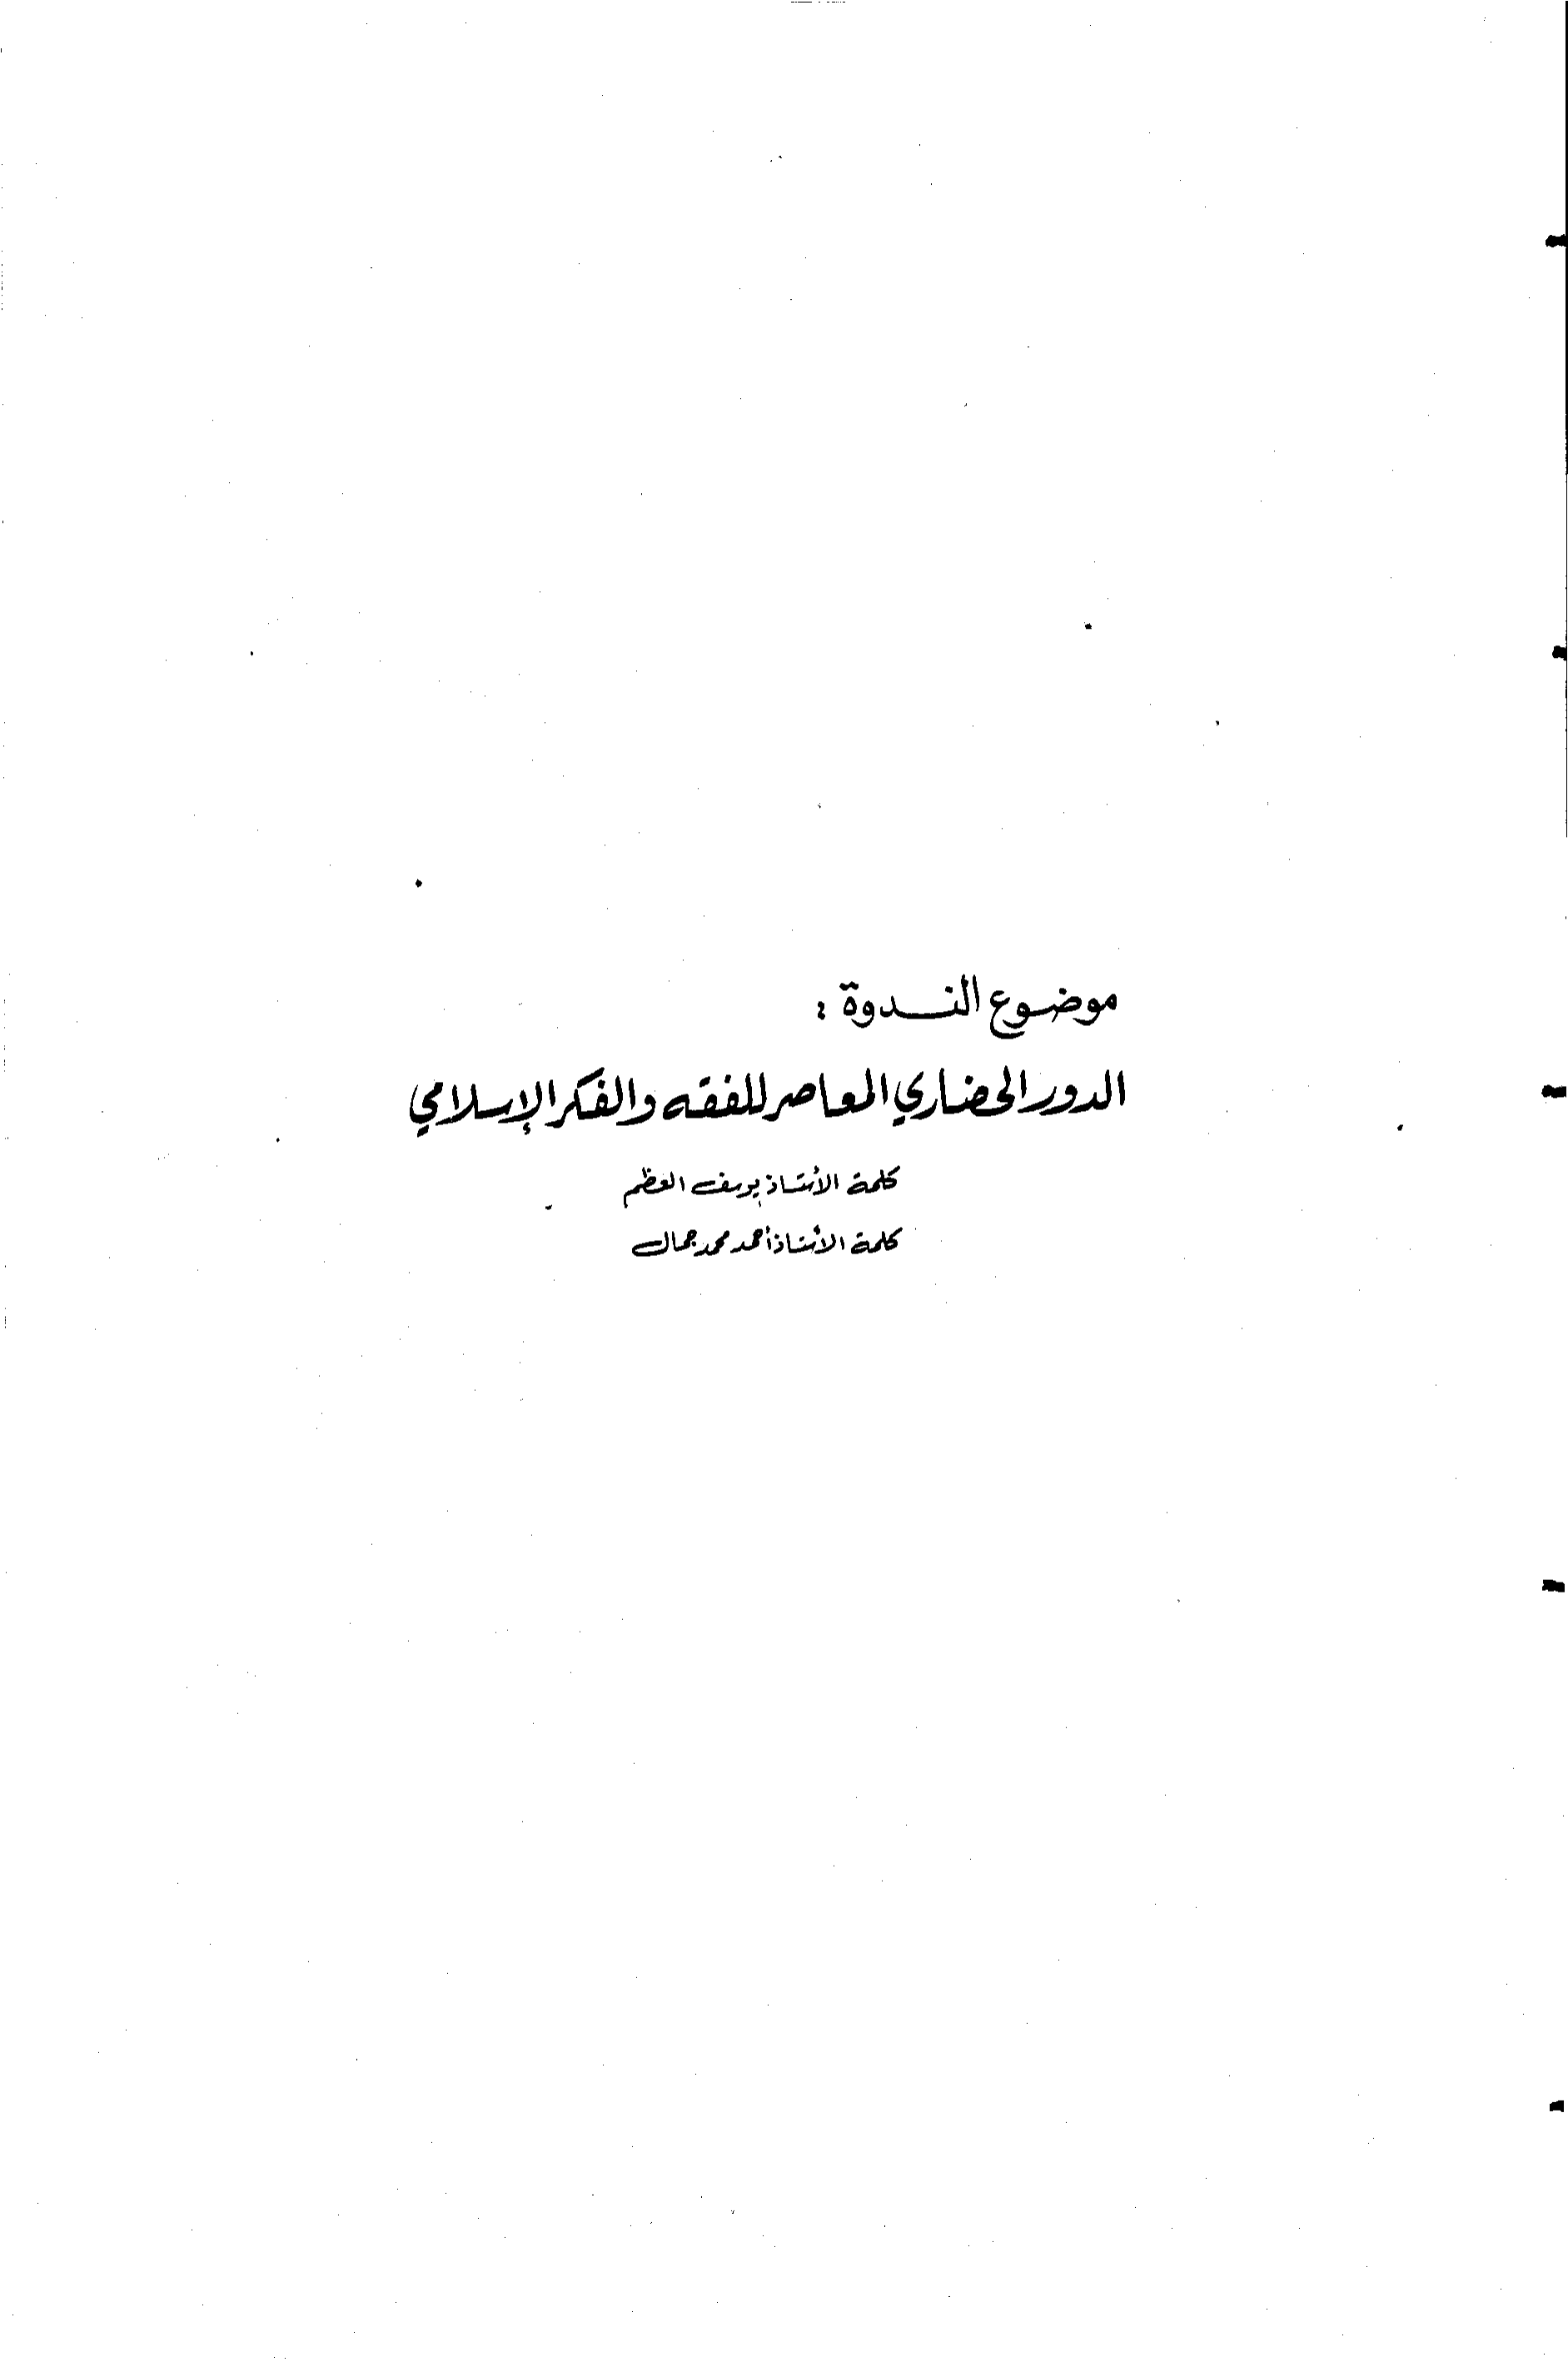 موضوع الندوة :
الدور الحضاري المعاصر للفقه والفكر الإسلامي
كلمة الأستاذ يوسف العظم
كلمة الأستاذ أحمد محمد جمال